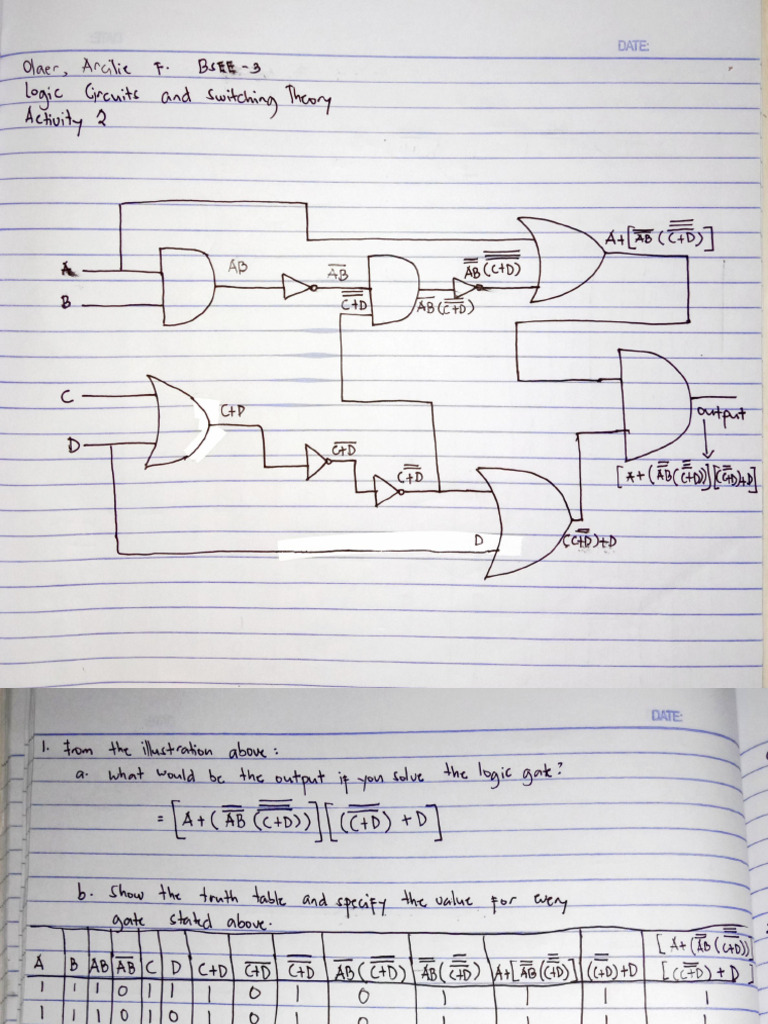 DATE:
Olaer, Arcilie F. BSEE-3
Logic Circuits and Switching Theory
Activity 2
A
B
AB
A̅B̅
C̿+̿D̿
A̅B̅ (C̿+̿D̿)
A̿B̿ (C̿̅+̿̅D̿̅)
A+[A̿B̿ (C̿̅+̿̅D̿̅)]
C
D
C+D
C̅+̅D̅
C̿+̿D̿
D
(C̿+̿D̿)+D
output
[A+(A̿B̿(C̿̅+̿̅D̿̅))][(C̿+̿D̿)+D]
DATE:
1. From the illustration above:
a. What would be the output if you solve the logic gate?
= [A+(A̿B̿ (C̿̅+̿̅D̿̅))][(C̿+̿D̿) +D]
b. Show the truth table and specify the value for every
gate stated above.
A B AB A̅B̅ C D C+D C̅+̅D̅ C̿+̿D̿ A̅B̅(C̿+̿D̿) A̿B̿(C̿̅+̿̅D̿̅) A+[A̿B̿(C̿̅+̿̅D̿̅)] (C̿+̿D̿)+D [A+(A̿B̿(C̿̅+̿̅D̿̅))] [(C̿+̿D̿)+D]
1 1 1 0 1 1 1 0 1 0 1 1 1 1
1 1 1 0 1 0 1 0 1 0 1 1 1 1